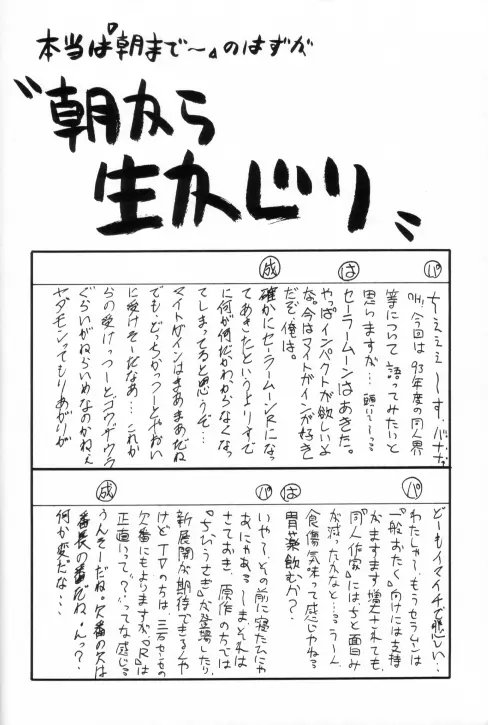 本当は『朝まで〜』のはずが
〝朝から
生かじり〟
パ
ちぇぇぇ〜す、バナナ
「H」、今回は93年度の同人界
等について語ってみたいと
思いますが…
は
セーラームーンはあきた。
やっぱインパクトが欲しいよ
な。今はマイトガインが好き
だぞ俺は。
成
確かにセーラームーンRになっ
てあきたというよりすで
に何が何だかわからなくなっ
てしまってると思うぞ…
マイトガインはまあまあだね
でも、どっちかっつーとやおい
に受けそーだなあ…これか
らの受けっつーとゴウザウラ
ぐらいがねらいめなのかねぇ
ヤダモンってもりあがりが
パ
どーもイマイチで悲しい…
わたしゃ〜もうセラムンは
「一般おたく」向けには支持
がますます増大されても、
「同人作家」にはちと面白み
が減ったかなと…う〜ん
は
食傷気味って感じやねぇ
胃薬飲むか?
パ
いや〜その前に寝たひにゃ
あにゃあるしまぁそれは
さておき、原作の方では
『ちびうさぎ』が登場したり、
新展開が期待できるんや
けどTVの方は、三石センセの
欠番にもよりますが『R』は
正直いって「?」ってな感じぶ
成
うんそーだね。欠番の欠は
番長の番だね。んっ?
何か変だな…